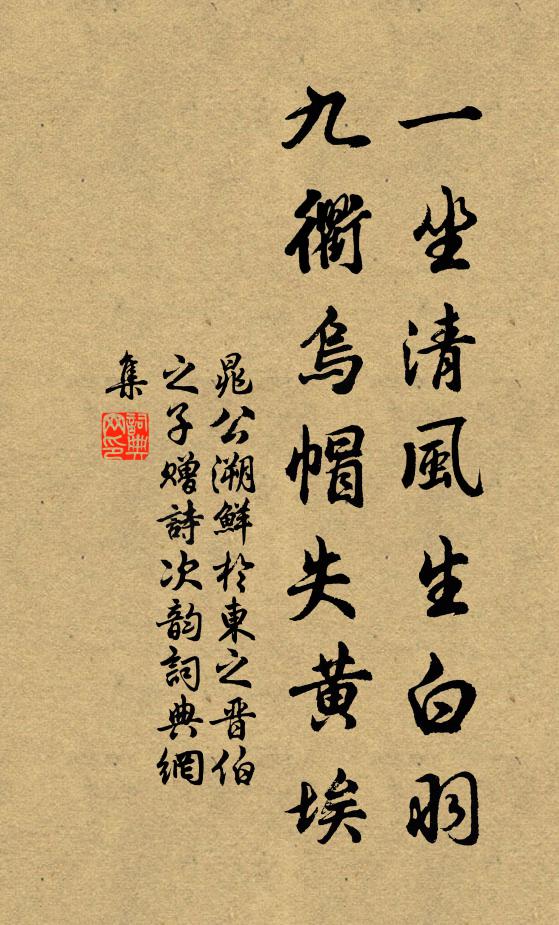 一坐清風生白羽
九衢烏帽失黃埃
晁公溯鮮於東之晋伯
之子贈詩次韵詞典網
集
詞典
网印